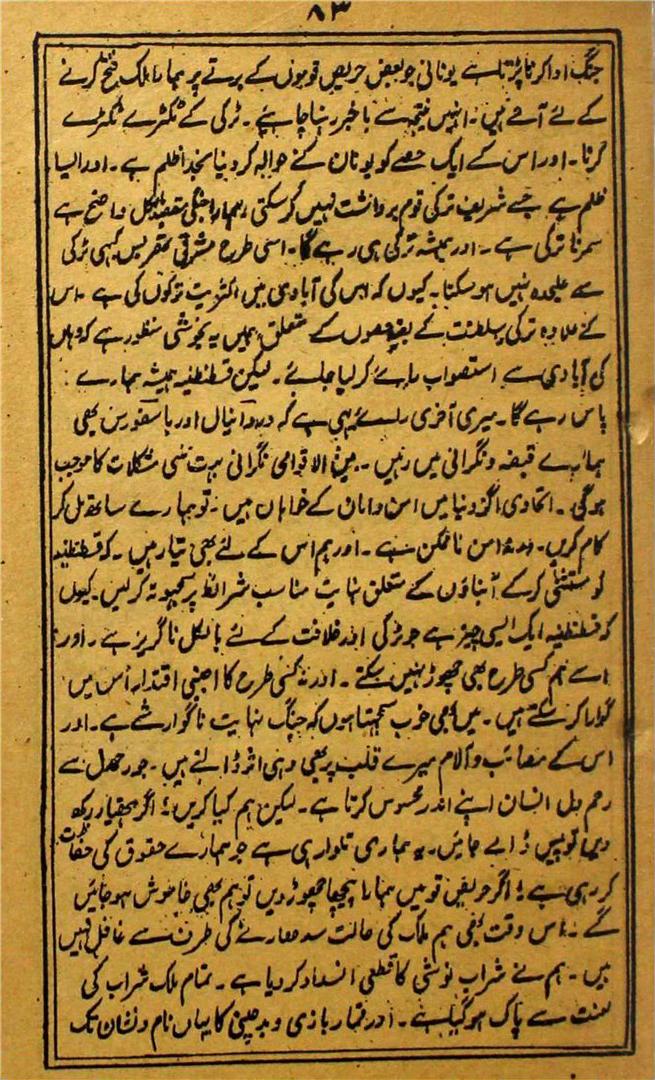 ۸۳
جنگ ادا کرنا پڑتا ہے یونانی جو بعض حریص قوموں کے برتے پر ہمارا ملک فتح کرنے
کے لئے آئے ہیں۔ انہیں نتیجہ سے باخبر رہنا چاہئے۔ ٹرکی کے ٹکڑے ٹکڑے
کرنا۔ اور اس کے ایک حصے کو یونان کے حوالہ کر دینا سخت ظلم ہے۔ اور ایسا
ظلم ہے جسے شریف ترکی قوم برداشت نہیں کر سکتی، ہمارا جنگی مقصد بالکل واضح ہے
سمرنا ترکی ہے۔ اور ہمیشہ ترکی ہی رہے گا۔ اسی طرح مشرقی تھریس کبھی ٹرکی
سے علیحدہ نہیں ہو سکتا۔ کیوں کہ اس کی آبادی میں اکثریت ترکوں کی ہے۔ اس
کے علاوہ ترکی سلطنت کے بقیہ حصوں کے متعلق ہمیں یہ بخوشی منظور ہے کہ وہاں
کی آبادی سے استصواب رائے کر لیا جائے۔ لیکن قسطنطنیہ ہمیشہ ہمارے
پاس رہے گا۔ میری آخری رائے یہی ہے کہ دردانیال اور باسفورس بھی
ہمارے قبضہ و نگرانی میں رہیں۔ بین الاقوامی نگرانی بہت سی مشکلات کا موجب
ہوگی۔ اتحادی اگر دنیا میں امن و امان کے خواہاں ہیں۔ تو ہمارے ساتھ مل کر
کام کریں۔ ورنہ امن ناممکن ہے۔ اور ہم اس کے لئے بھی تیار ہیں۔ کہ قسطنطنیہ
کو مستثنیٰ کر کے آبناؤں کے متعلق نہایت مناسب شرائط پر سمجھوتہ کر لیں۔ کیوں
کہ قسطنطنیہ ایک ایسی چیز ہے جو ٹرکی اور خلافت کے لئے بالکل ناگریز ہے۔ اور
اسے ہم کسی طرح بھی چھوڑ نہیں سکتے۔ اور نہ کسی طرح کا اجنبی اقتدار اُس میں
گوارا کر سکتے ہیں۔ میں بھی خوب سمجھتا ہوں کہ جنگ نہایت ناگوار شے ہے۔ اور
اس کے مصائب و آلام میرے قلب پر بھی وہی اثر ڈالتے ہیں۔ جو رحمدل سے
رحم دل انسان اپنے اندر محسوس کرتا ہے۔ لیکن ہم کیا کریں؟ اگر ہتھیار رکھ
دیں تو پیس ڈالے جائیں۔ یہ ہماری تلوار ہی ہے جو ہمارے حقوق کی حفاظت
کر رہی ہے؛ اگر حریف قومیں ہمارا پیچھا چھوڑ دیں تو ہم بھی خاموش ہو جائیں
گے۔ اس وقت بھی ہم ملک کی حالت سدھارنے کی طرف سے غافل نہیں
ہیں۔ ہم نے شراب نوشی کا قطعی انسداد کر دیا ہے۔ تمام ملک شراب کی
لعنت سے پاک ہو گیا ہے۔ اور قمار بازی و بدچلنی کا یہاں نام و نشان تک